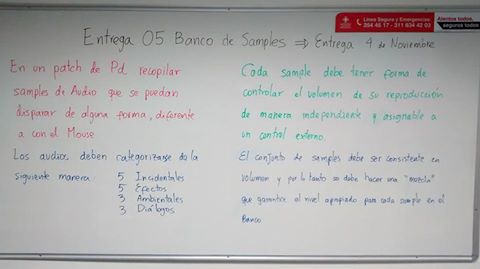 Línea Segura y Emergencias:
Atentos todos,
seguros todos
Entrega 05 Banco de Samples ⇒ Entrega 4 de Noviembre
En un patch de Pd recopilar
samples de Audio que se puedan
disparar de alguna forma, diferente
a con el Mouse
Los audios deben categorizarse de la
siguiente manera
5 Incidentales
5 Efectos
3 Ambientales
3 Diálogos
Cada sample debe tener forma de
controlar el volumen de su reproducción
de manera independiente y asignable a
un control externo.
El conjunto de samples debe ser consistente en
volumen y por lo tanto se debe hacer una "mezcla"
que garantice el nivel apropiado para cada sample en el
Banco